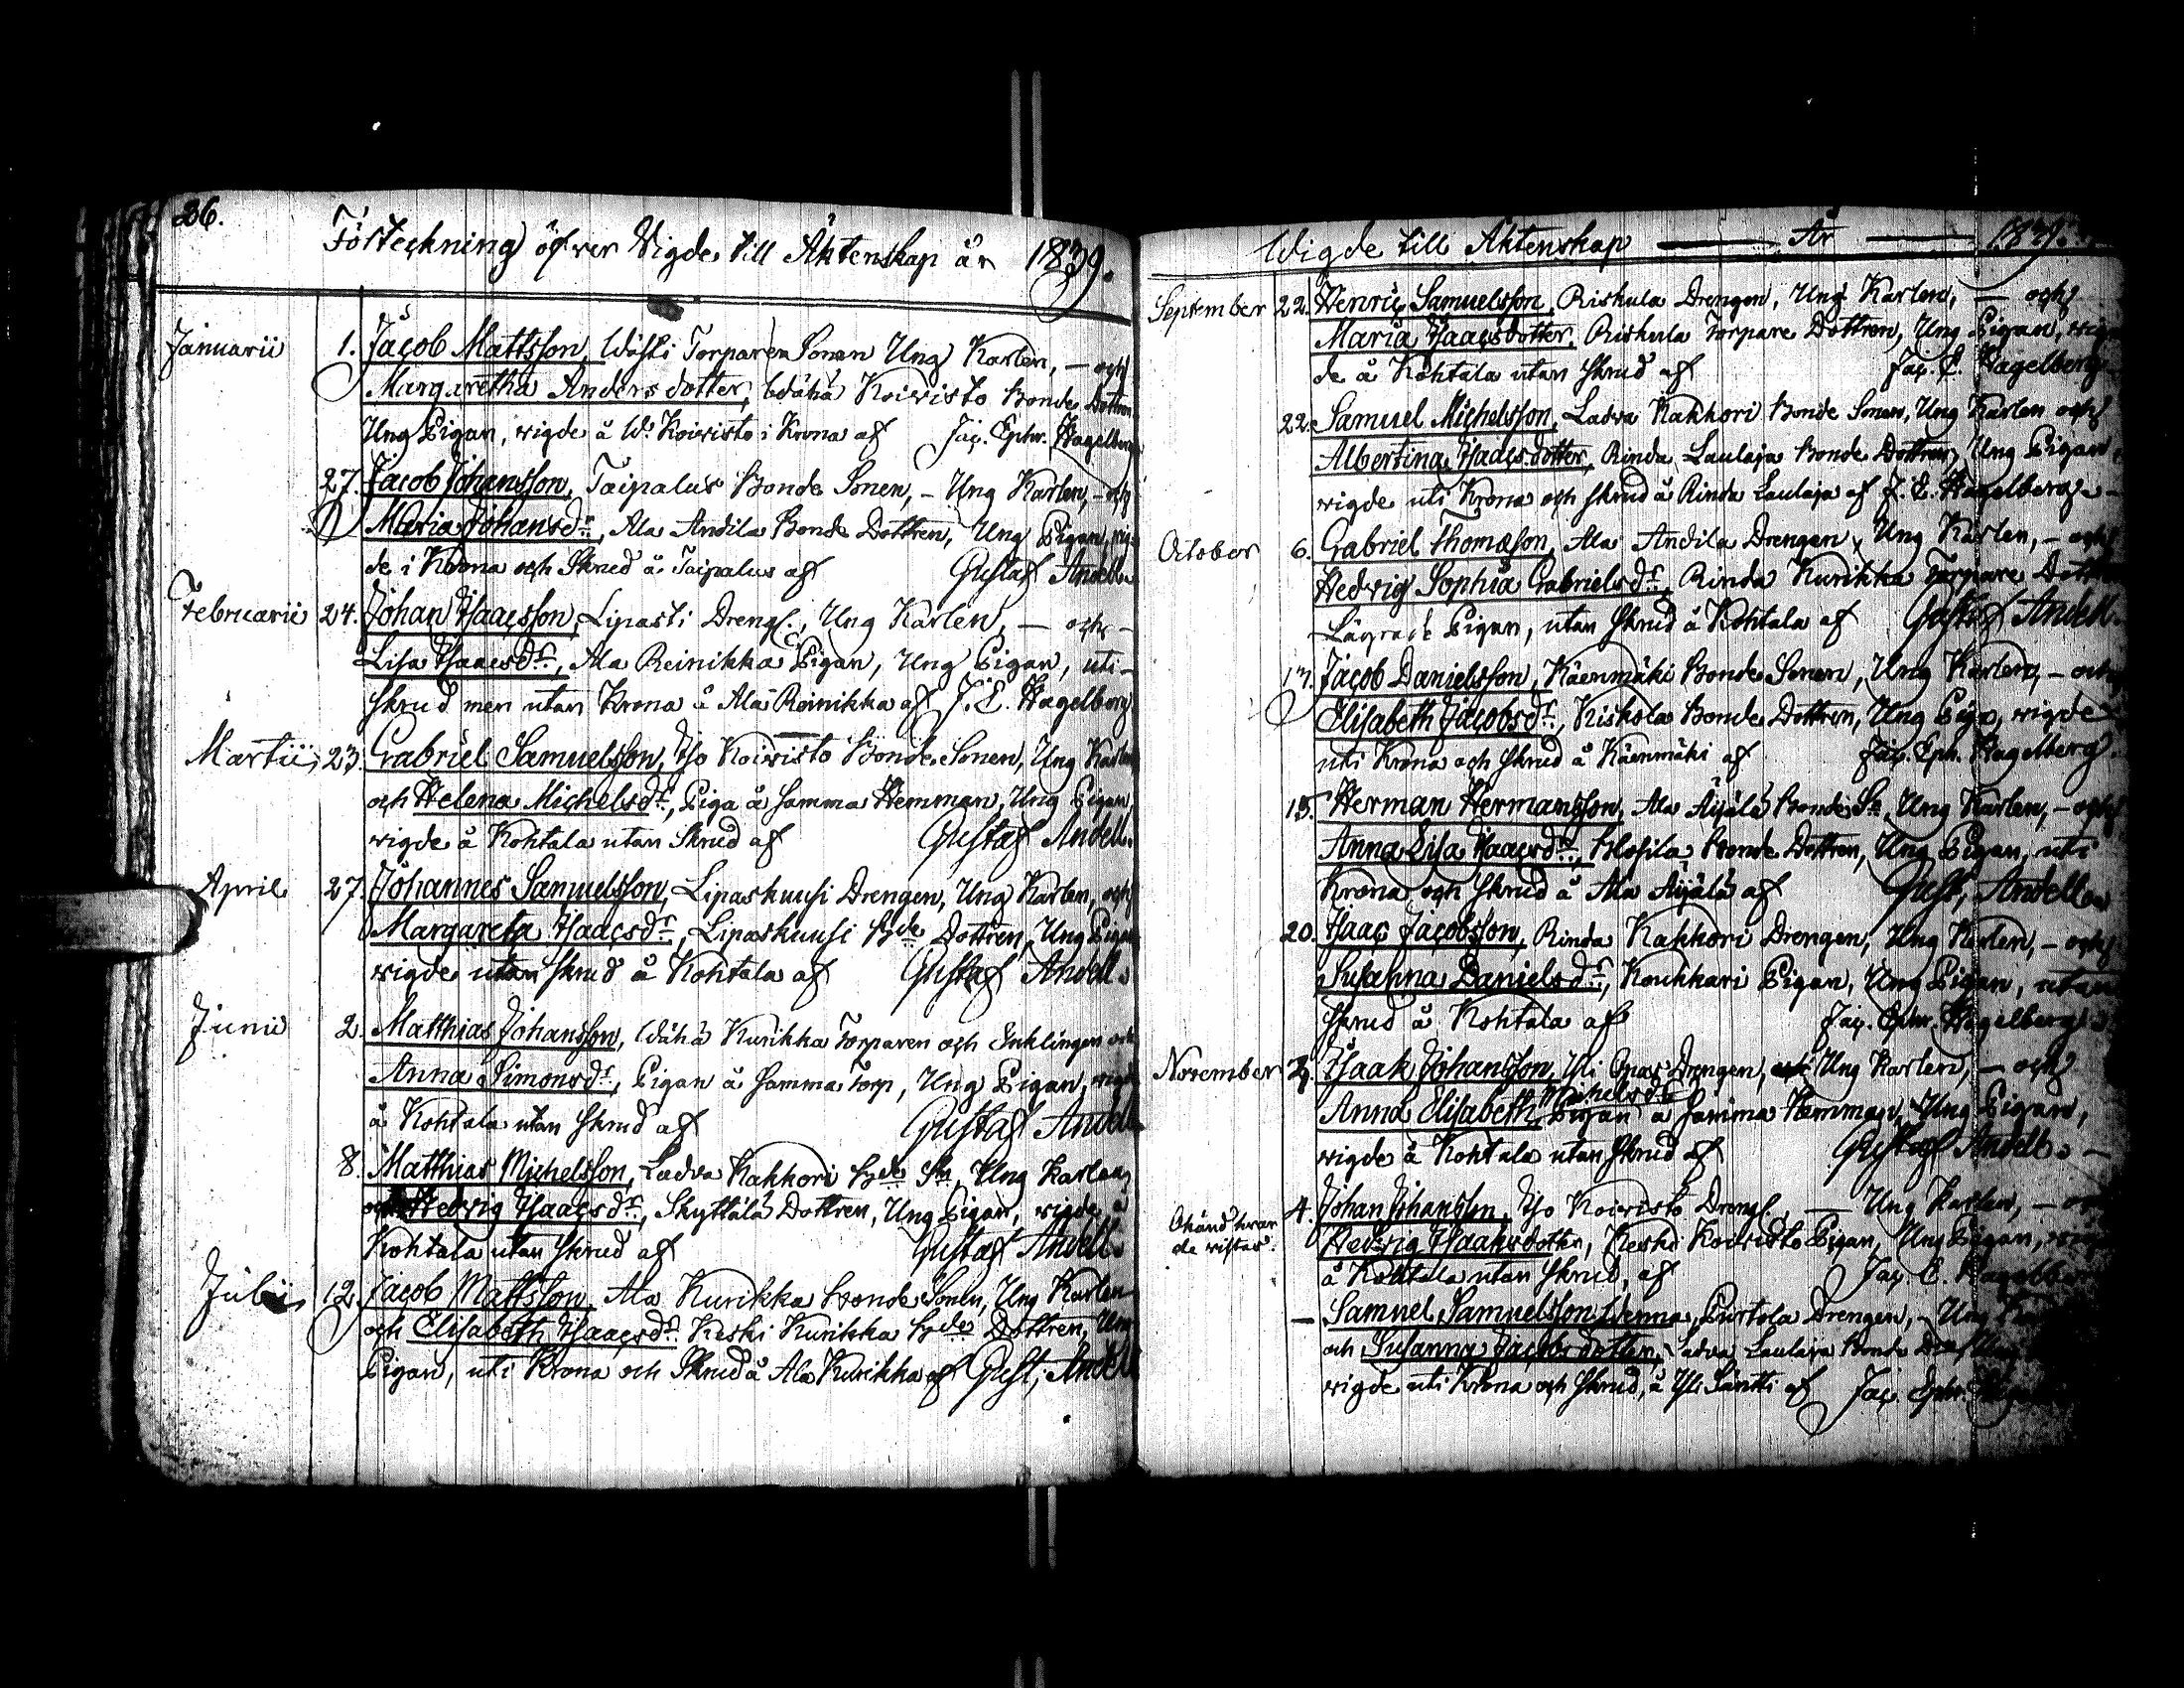 26.
Förteckning öfver Vigde till Äktenskap år 1839.
Januarii 1. Jacob Mattsson, Wästi Torparen Sonen Ung Karlen, — och
Margaretha Andersdotter, Wähä Koivisto Bonde Dottren
Ung Pigan, vigde å W. Koivisto i Krona af Jac. Ephr. Hagelberg
27. Jacob Johansson, Taipalus Bonde Sonen, – Ung Karlen, – och
Maria Johansdr, Ala Andila Bonde Dottren, Ung Pigan, vig-
de i Krona och Skrud å Taipalus af Gustaf Andell.
Februarii 24. Johan Isaacsson, Lipasti Drengs., Ung Karlen, — och –
Lisa Isaacsdr, Ala Reinikka Pigan, Ung Pigan, uti –
skrud men utan Krona å Ala Reinikka af J. E. Hagelberg
Martii, 23. Gabriel Samuelsson, Iso Koivisto Bonde Sonen, Ung Karlen
och Helena Michelsdr, Piga å samma Hemman, Ung Pigan,
vigde å Kohtala utan Skrud af Gustaf Andell.
April 27. Johannes Samuelsson, Lipaskuusi Drengen, Ung Karlen, och
Margareta Isaacsdr, Lipaskuusi Bde Dottren, Ung Pigan
vigde utan skrud å Kohtala af Gustaf Andell.
Junii 2. Matthias Johansson, Wähä Kurikka Torparen och Enklingen och
Anna Simonsdr, Pigan å samma Torp, Ung Pigan, vigde
å Kohtala utan skrud af Gustaf Andell
8. Matthias Michelsson, Ladva Kakkori Bde Sn, Ung Karlen
och Hedvig Isaacsdr, Skyttälä Dottren, Ung Pigan, vigde å
Kohtala utan skrud af Gustaf Andell.
Julii 12. Jacob Mattsson, Ala Kurikka Bonde Sonen, Ung Karlen
och Elisabeth Isaacsdr. Keski Kurikka Bde Dottren, Ung
Pigan, uti Krona och Skrud å Ala Kurikka af Gust, Andell
Wigde till Äktenskap — År — 1839.
September 22. Henric Samuelsson, Riskula Drengen, Ung Karlen, — och
Maria Isaacsdotter, Riskula Torpare Dottren, Ung Pigan, vig
de å Kohtala utan skrud af Jac. E. Hagelberg
22. Samuel Michelsson, Ladva Kakkori Bonde Sonen, Ung Karlen och
Albertina Isaacsdotter, Rinda Laulaja Bonde Dottren, Ung Pigan
vigde uti Krona och skrud å Rinda Laulaja af J. E. Hagelberg. –
October 6. Gabriel Thomasson, Ala Andila Drengen, Ung Karlen, – och
Hedvig Sophia Gabrielsdr, Rinda Kurikka Torpare Dottren
Lägrade Pigan, utan skrud å Kohtala af Gustaf Andell.
Jacob Danielsson, Käenmäki Bonde Sonen, Ung Karlen, – och
Elisabeth Jacobsdr, Kiskola Bonde Dottren, Ung Piga, vigde
uti Krona och skrud å Käenmäki af Jac. Eph. Hagelberg.
15. Herman Hermansson, Ala Äijälä Bonde Sn, Ung Karlen, – och
Anna Lisa Isaacsdr, Blosila Bonde Dottren, Ung Pigan, uti
Krona och skrud å Ala Äijälä af Gust, Andell.
20. Isaac Jacobsson, Rinda Kakkori Drengen, Ung Karlen, – och
Susanna Danielsdr, Koukkari Pigan, Ung Pigan, utan
skrud å Kohtala af Jac. Ephr. Hagelberg.
November 3. Isaak Johansson, Yli Opas Drengen, Ung Karlen, — och
Anna Elisabeth Michelsdr Pigan å samma Hemman, Ung Pigan,
vigde å Kohtala utan skrud af Gustaf Andell. –
Okänd hvar
de vistas. 4. Johan Johansson, Iso Koivisto Drengs. — Ung Karlen, – och
Hedvig Isaaksdotter, Keski Koivisto Pigan, Ung Pigan, vigde
å Kohtala utan skrud, af Jac. E. Hagelberg
— Samuel Samuelsson Wenna, Purtola Drengen, – Ung
och Susanna Jacobsdotter, Ladva Laulaja Bonde
vigde uti Krona och skrud, å Yli Säntti af Jac. Ephr.